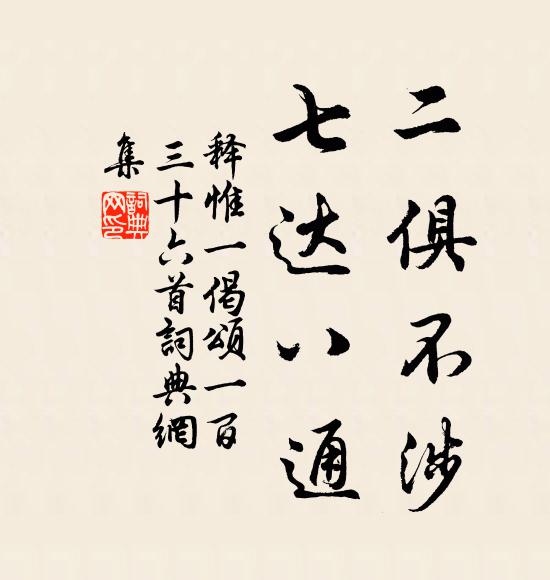 二俱不涉
七达八通
释惟一偈頌一百
三十六首詞典網
集
詞典
网印